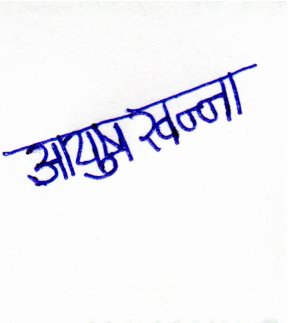 आयुष खन्ना